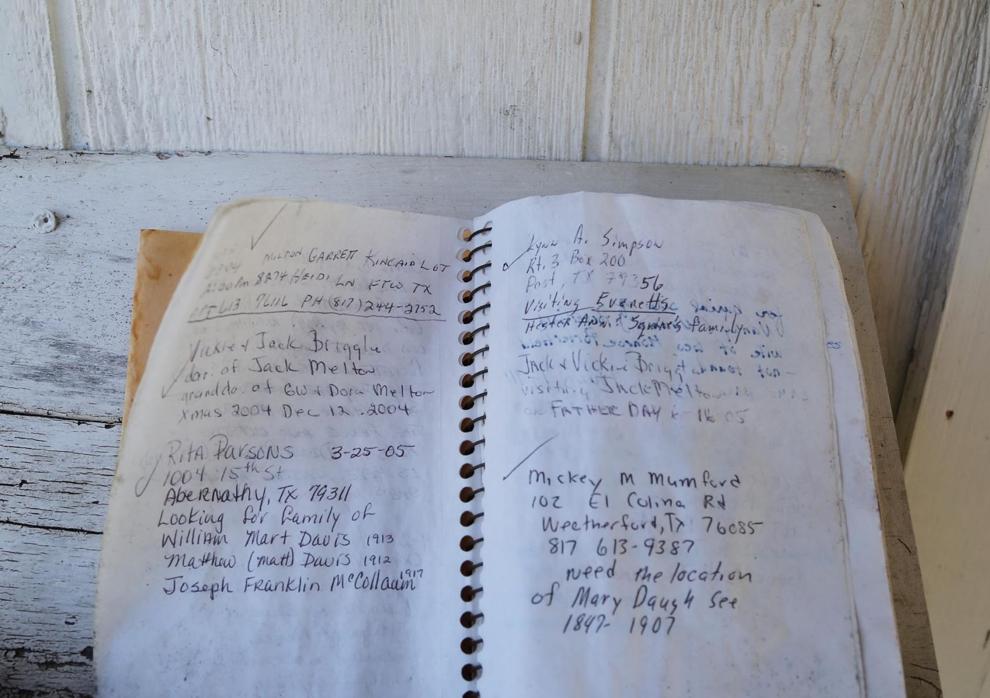 MILTON GARRETT KINCAID LOT
8874 HEIDI LN FTW TX
76116 PH (817) 244-2752
Vickie & Jack Briggle
dar. of Jack Melton
granddo. of GW & Dora Melton
Xmas 2004 Dec 12, 2004
Rita Parsons 3-25-05
1004 15th St
Abernathy, Tx 79311
Looking for family of
William Mart Davis 1913
Matthew (Matt) Davis 1912
Joseph Franklin McCollaum 1917
Lynn A. Simpson
Rt. 3 Box 200
Post, TX 79356
Visiting Everetts
Hester Squires family
Jack & Vickie Brigg
visiting Jack Melton
on FATHER DAY 05
Mickey M Mumford
102 El Colina Rd
Weatherford, Tx 76085
817 613-9387
need the location
of Mary Daugh See
1847- 1907